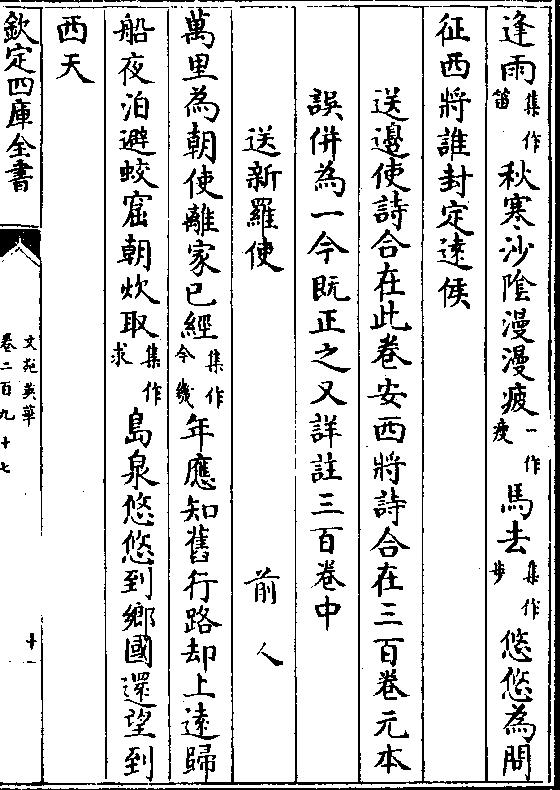 逢雨集作笛秋寒沙陰漫漫疲一作瘦馬去集作步悠悠為問
征西將誰封定遠侯
送邊使詩合在此卷安西將詩合在三百卷元本
誤併為一今既正之又詳註三百卷中
送新羅使 前人
萬里為朝使離家已經集作今幾年應知舊行路却上遠歸
船夜泊避蛟窟朝炊取集作求島泉悠悠到鄉國還望到
西天
欽定四庫全書
文苑英華
卷二百九十七
十一